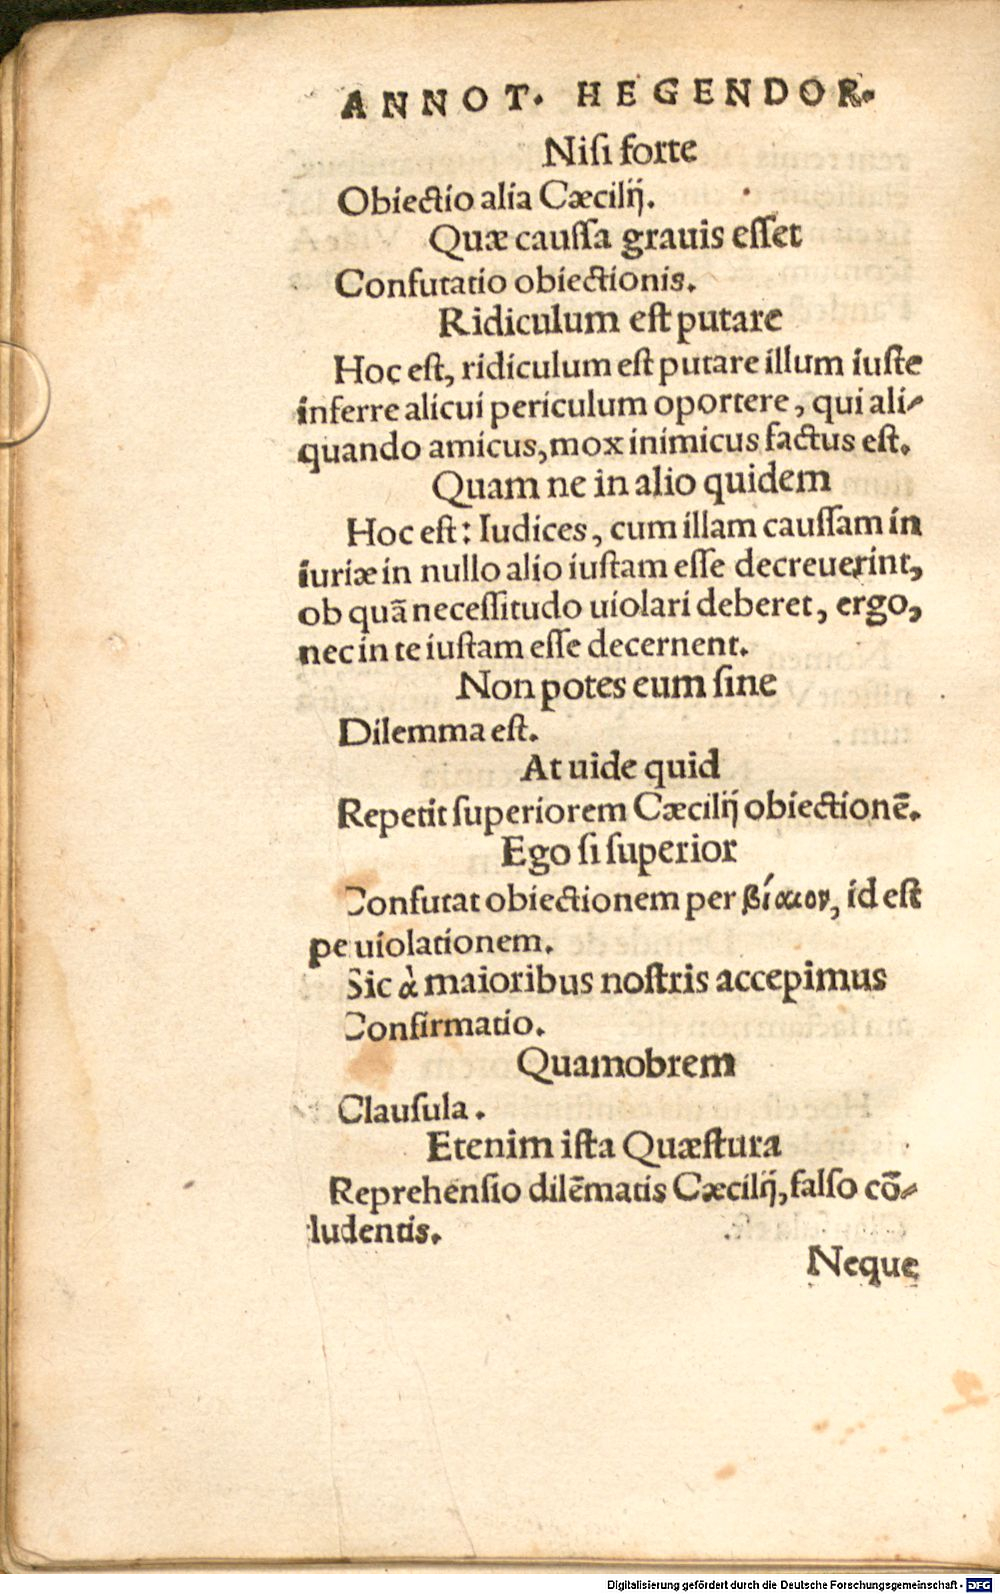 ANNOT. HEGENDOR.
Niſi forte
Obiectio alia Cæcilij.
Quæ cauſſa grauis eſſet
Confutatio obiectionis.
Ridiculum eſt putare
Hoc eſt, ridiculum eſt putare illum iuſte
inferre alicui periculum oportere, qui ali⸗
quando amicus, mox inimicus factus eſt.
Quam ne in alio quidem
Hoc eſt: Iudices, cum illam cauſſam in
iuriæ in nullo alio iuſtam eſſe decreuerint,
ob quā neceſſitudo uiolari deberet, ergo,
nec in te iuſtam eſſe decernent.
Non potes eum ſine
Dilemma eſt.
At uide quid
Repetit ſuperiorem Cæcilij obiectionē.
Ego ſi ſuperior
Confutat obiectionem per βίαιον, id eſt
pe uiolationem.
Sic à maioribus noſtris accepimus
Confirmatio.
Quamobrem
Clauſula.
Etenim iſta Quæſtura
Reprehenſio dilēmatis Cæcilij, falſo cō⸗
ludentis.
Neque
Digitalisierung gefördert durch die Deutsche Forschungsgemeinschaft - DFG